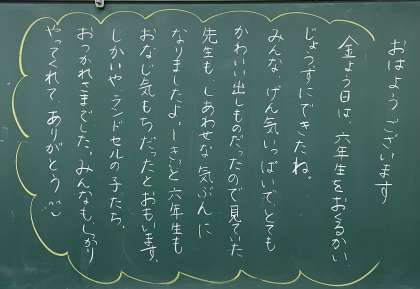 おはようございます
金よう日は、六年生をおくるかい
じょうずにできたね。
みんな、げん気いっぱいで、とても
かわいい出しものだったので見ていた
先生も、しあわせな気ぶんに
なりましたよ。きっと六年生も
おなじ気もちだったとおもいます。
しかいや ランドセルの子たち、
おつかれさまでした。みんなも、しっかり
やってくれて ありがとう